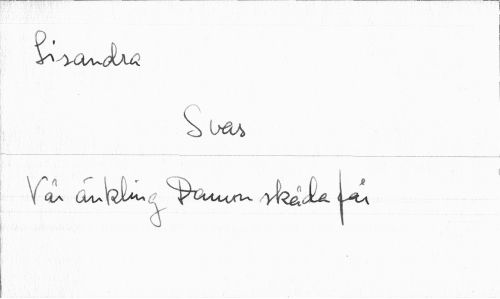 Lisandra
Svar
Vår änkling Damon skåda får